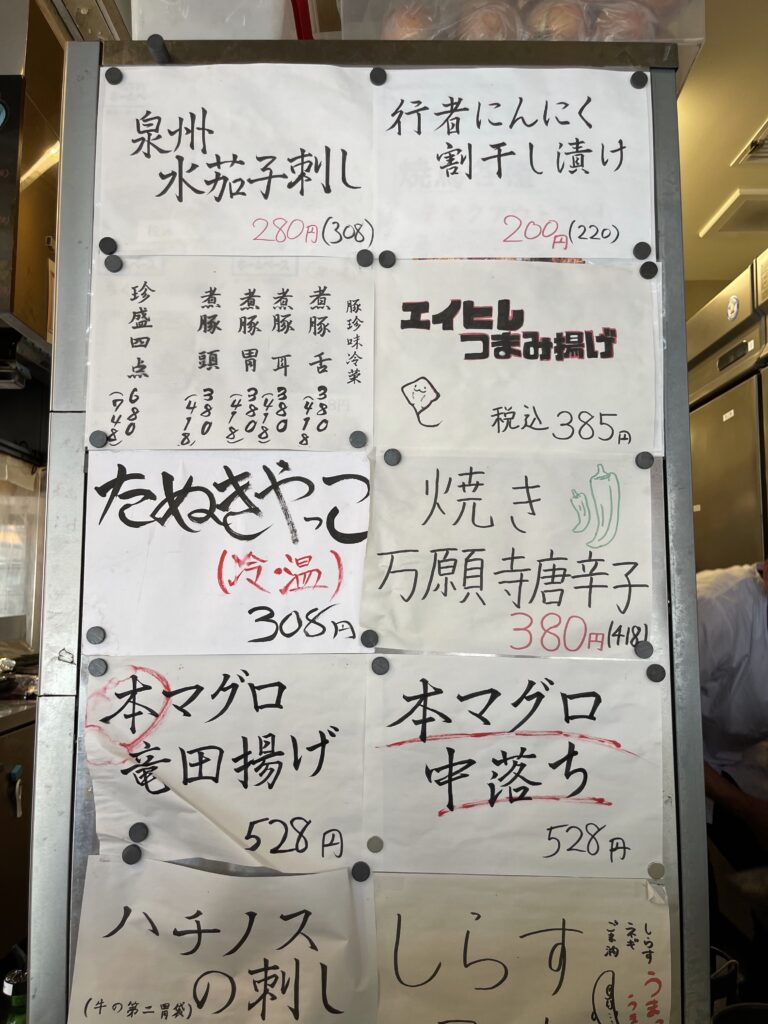 泉州
水茄子刺し
280円(308)
行者にんにく
割干し漬け
200円(220)
豚珍味冷菜
煮豚 舌 380 (418)
煮豚 耳 380 (418)
煮豚 胃 380 (418)
煮豚 頭 380 (418)
珍盛四点 680 (748)
エイヒレ
つまみ揚げ
税込385円
たぬきやっこ
(冷・温)
308円
焼き
万願寺唐辛子
380円(418)
本マグロ
竜田揚げ
528円
本マグロ
中落ち
528円
ハチノス
の刺し
(牛の第二胃袋)
しらす
しらす
ネギ
ごま油